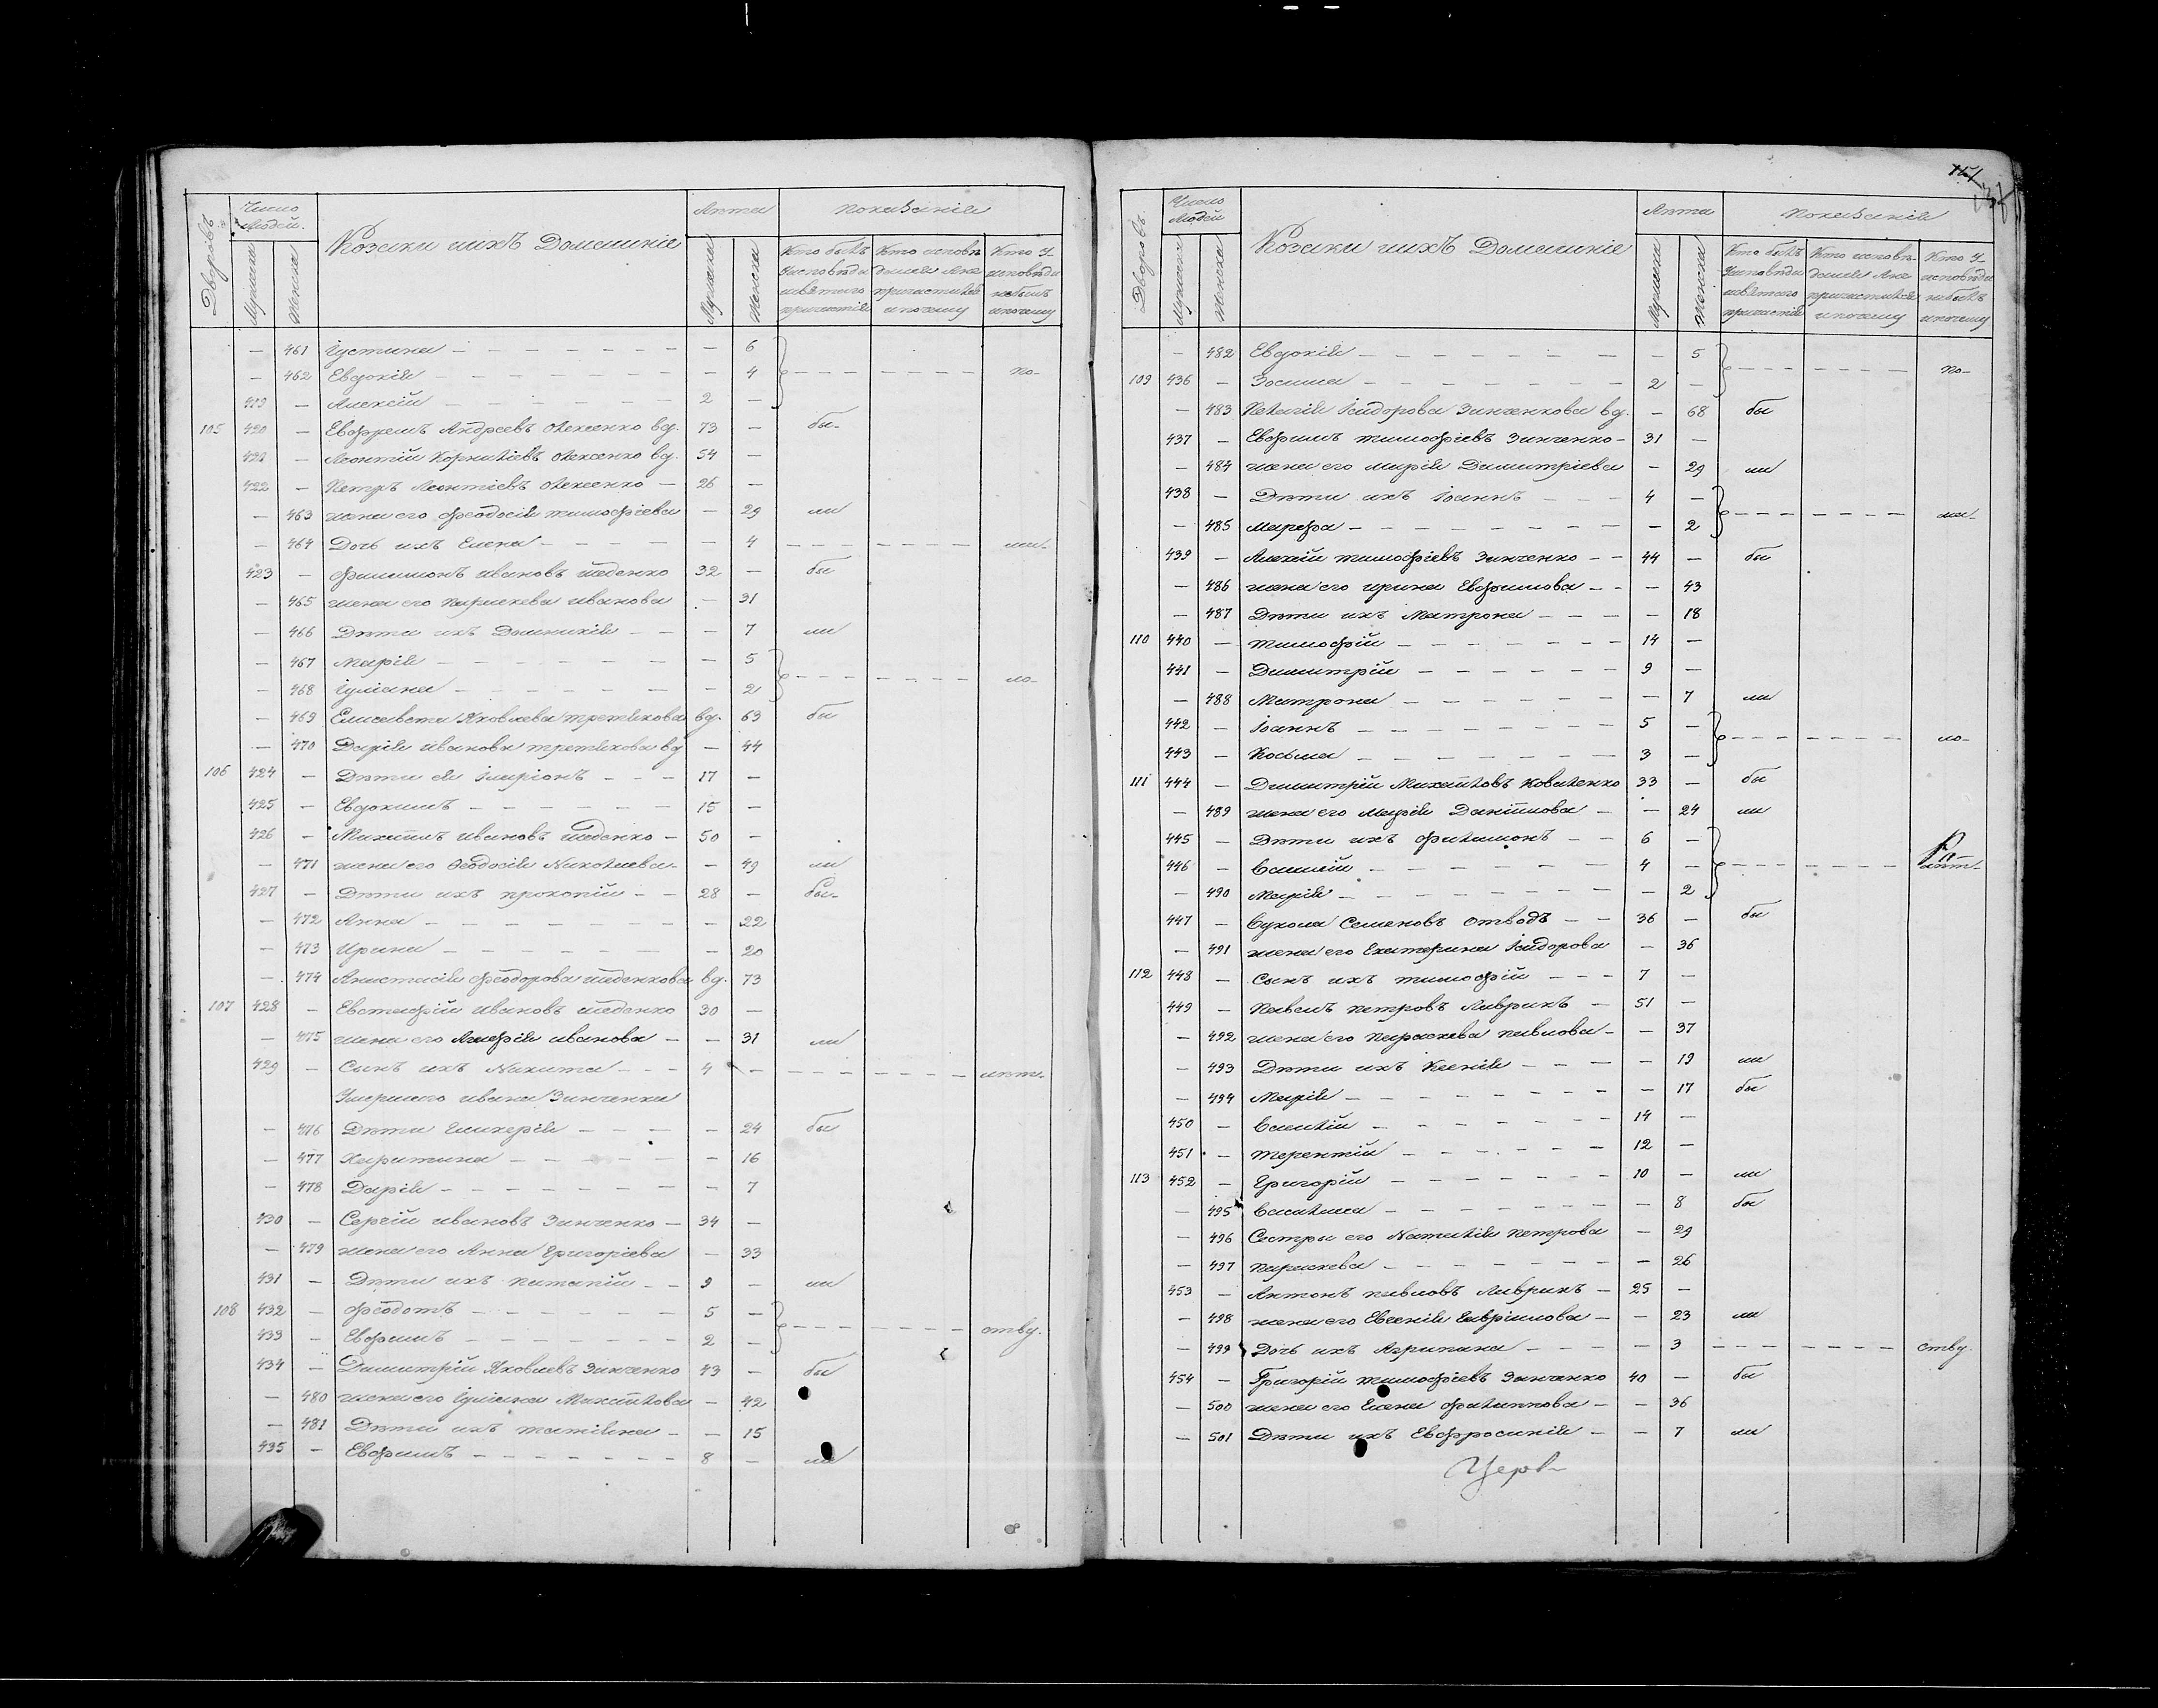 Дворовъ
Число Людей.
Мужеска
Женска
Козаки иихъ Домашніе
Лѣта
Мужеска
Женска
Показаніе
Кто былъ Уисповѣди исвятаго причастія
Кто исповѣдался Ане причастился ипочему
Кто У исповѣди небылъ ипочему
— 461 Іустина — — 6
— 462 Евдокія — — 4 по-
419 — Алексій — 2 —
105 420 — Ефремъ Андреевъ Олексенко вд. 73 — бы-
421 — Леонтій Корниліевъ Олексенко вд. 54 —
422 — Петръ Леонтіевъ Олексенко — 26 —
— 463 жена его Феодосія тимофіева — 29 ли
— 464 Дочь ихъ Елена — — 4
423 — Филимонъ ивановъ шеденко 32 — бы
— 465 жена его параскева иванова — 31
— 466 Дѣти ихъ Домникія — — 7 ли
— 467 Марія — — 5
— 468 Іуліана — — 2 ло-
— 469 Елисавета Яковлева третякова вд. 63 бы
— 470 Дарія иванова третякова вд — 44
106 424 — Дѣти ея Іларіонъ — 17 —
425 — Евдокимъ — 15 —
426 — Михаилъ ивановъ шеденко — 50 —
— 471 жена его Ѳеодосія Николаева — — 49 ли
427 — Дѣти ихъ прокопій — 28 — бы-
— 472 Анна — — 22
— 473 Ирина — — 20
— 474 Анастасія Феодорова шеденкова вд. 73
107 428 — Евстафій ивановъ шеденко 30 —
— 475 жена его Агафія иванова — — 31 ли
429 — Сынъ ихъ Никита — 4 — лѣт-
Умершаго ивана Зинченка
— 476 Дѣти Гликерія — — 24 бы
— 477 Харитина — — 16
— 478 Дарія — — 7
430 — Сергій ивановъ Зинченко — 34 —
— 479 жена его Анна Григоріева — 33
431 — Дѣти ихъ потапій — 9 — ли
108 432 — Феодотъ — 5 —
433 — Евфимъ — 2 — ству.
434 — Димитрій Яковлевъ Зинченко 43 — бы
— 480 жена его Іуліана Михайлова — 42
— 481 Дѣти ихъ татіяна — — 15
435 — Евфимъ — 8 — ли
151
Дворовъ.
Число Людей
Мужеска
Женска
Козаки иихъ Домашніе
Лѣта
Мужеска
Женска
Показаніе
Кто былъ Уисповѣди исвятаго причастія
Кто исповѣдался Ане причастился ипочему
Кто У исповѣди небылъ ипочему
— 482 Евдокія — — 5
109 436 — Зосима — 2 — по-
— 483 Пелагія Ісидорова Зинченкова вд. — 68 бы
437 — Евфимъ тимофіевъ Зинченко — 31 —
— 484 жена его марія Димитріева — 29 ли
438 — Дѣти ихъ Іоаннъ — 4 —
— 485 марфа — — 2
439 — Алексій тимофіевъ Зинченко — 44 — бы
— 486 жена его ирина Евфимова — — 43
— 487 Дѣти ихъ Матрона — — 18
110 440 — тимофій — 14 —
441 — Димитрій — 9 —
— 488 Матрона — — 7 ли
442 — Іоаннъ — 5 —
443 — Косьма — 3 — ло-
111 444 — Димитрій Михайловъ Коваленко 33 — бы
— 489 жена его Марія Даніилова — — 24 ли
445 — Дѣти ихъ Филимонъ — 6 —
446 — 4 — лѣт-
— 490 Марія — — 2
447 — Семеновъ Отводъ — 36 — бы
— 491 жена его Екатерина Ісидорова — 36
112 448 — Сынъ ихъ тимофій — 7 —
449 — Павелъ петровъ Лаврикъ — 51 —
— 492 жена его параскева павлова — — 37
— 493 Дѣти ихъ Ксенія — — 19 ли
— 494 Марія — — 17 бы
450 — 14 —
451 — терентій — 12 —
113 452 — Григорій — 10 — ли
— 495 — 8 бы
— 496 Сестры его Наталія петрова — 29
— 497 параскева — — 26
453 — Антонъ павловъ Лаврикъ — 25 —
— 498 жена его Евгенія Гавріилова — — 23 ли
— 499 Дочь ихъ Агрипина — — 3 ству.
454 — Григорій тимофіевъ Зинченко 40 — бы
— 500 жена его Елена Филиппова — — 36
— 501 Дѣти ихъ Евфросинія — — 7 ли
Церк-